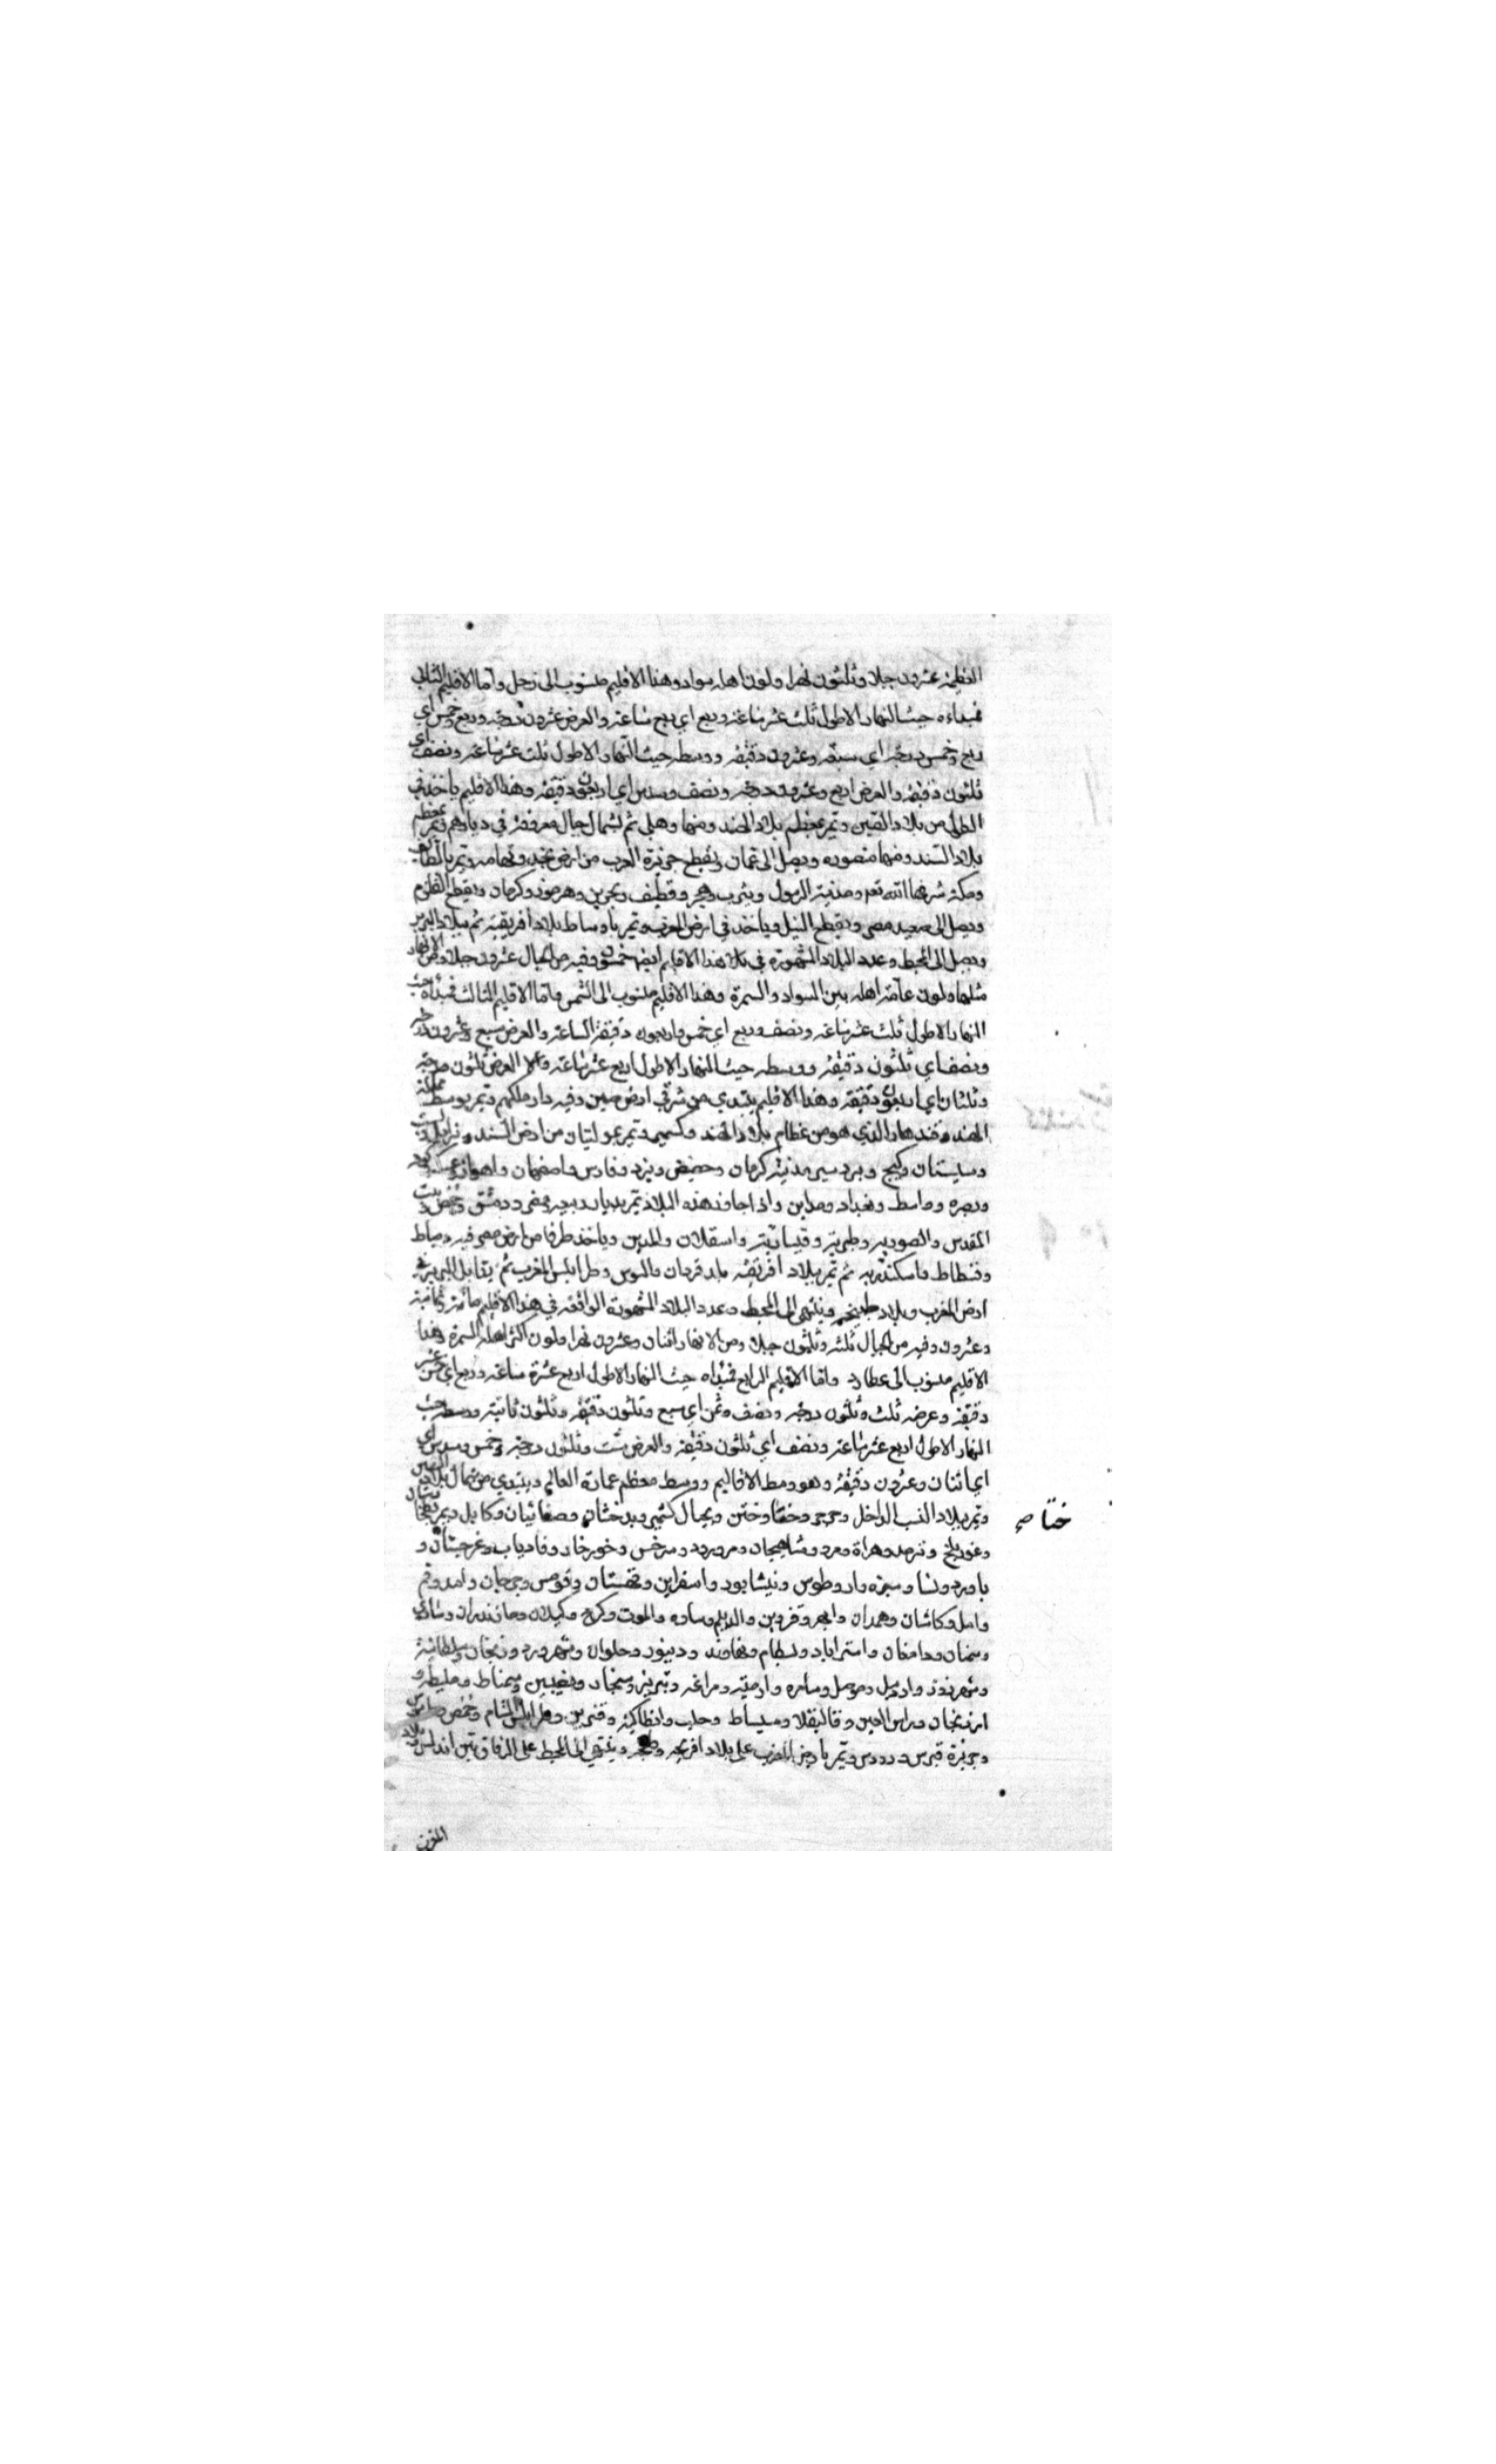 العظيمة عشرون جبلا وثلثون نهرا ولون اهله سواد وهذا الاقليم منسوب الى زحل واما الاقليم الثاني
فمبداءه حيث النهار الاطول ثلث عشر ساعة وربع اي ربع ساعة والعرض عشرون درجة وربع وخمس اي
ربع وخمس درجة اي سبعة وعشرون دقيقة ووسطه حيث النهار الاطول ثلث عشر ساعة ونصف اي
ثلثون دقيقة والعرض اربع وعشرون درجة ونصف وسدس اي اربعون دقيقة وهذا الاقليم ياخذ في
الطول من بلاد الصين وتمر بمعظم بلاد الهند ومنها دهلي ثم لشمال جبال معروفة في ديارهم وتمر بمعظم
بلاد السند ومنها منصوره ويصل الى عمان ويقطع جزيرة العرب من ارض نجد وتهامه وتمر بالطائف
ومكة شرفها الله تعم ومدينة الرسول ويثرب وهجر وقطيف وبحرين وهرموز وكرمان ويقطع القلزم
ويصل الى صعيد مصر ويقطع النيل وياخذ في ارض المغرب وتمر باوساط بلاد افريقية ثم ببلاد البربر
ويصل الى المحيط وعدد البلاد المشهورة في بلاد هذا الاقليم ايضا خمسون وفيه من الجبال عشرون جبلا ومن الانهار
مثلها ولون عامة اهله بين السواد والسمرة وهذا الاقليم منسوب الى الشمس واما الاقليم الثالث فمبداه حيث
النهار الاطول ثلث عشر ساعة ونصف وربع اي خمس واربعون دقيقة الساعة والعرض سبع وعشرون درجة
ونصف اي ثلثون دقيقة ووسطه حيث النهار الاطول اربع عشر ساعة والعرض ثلثون درجة
وثلثان اي اربعون دقيقة وهذا الاقليم يبتدي من شرقي ارض صين وفيه دار ملكهم وتمر بوسط مملكة
الهند وقندهار الذي هو من عظام بلاد الهند وكشمير وتمر بمولتان من ارض السند و
وسيستان وكيج وبردسير مدينة كرمان وخبيص ويزد وفارس واصفهان واهواز وعسكر وكوفه
وبصره وواسط وبغداد ومداين واذا جاوز هذه البلاد تمر بديار ربيعه ومضر ودمشق وحمص وبيت
المقدس والصوريه وطبرية وقيسارية واسقلان والمدين وياخذ طرفا من ارض مصر فيه دمياط
وفسطاط واسكندريه ثم تمر ببلاد افريقيه بلد قروان والسوس وطرابلس المغرب ثم يقابل البربر في
ارض المغرب وبلاد طنجه وينتهي الى المحيط وعدد البلاد المشهورة الواقعة في هذا الاقليم مائة وثمانية
وعشرون وفيه من الجبال ثلثه وثلثون جبلا ومن الانهار اثنان وعشرون نهرا ولون اكثر اهله السمرة وهذا
الاقليم منسوب الى عطارد واما الاقليم الرابع فمبداه حيث النهار الاطول اربع عشرة ساعة وربع اي خمس عشر
دقيقة وعرضه ثلث وثلثون درجة ونصف وثمن اي سبع وثلثون دقيقة وثلثون ثانية ووسطه حيث
النهار الاطول اربع عشر ساعة ونصف اي ثلثون دقيقة والعرض ست وثلثون درجة وخمس وسدس اي
اي اثنان وعشرون دقيقة وهو وسط الاقاليم ووسط معظم عمارة العالم ويبتدي من شمال بلاد الصين
وتمر ببلاد التبت الداخل وختا وختن وبجبال كشمير وبدخشان وصغانيان وكابل وبمر
وغور بلخ وترمد وهراة ومرو وشاهيجان ومرورود وسرخس وخورخان وفارياب وغرجستان و
باورد ونسا وسبزه وار وطوس ونيشابور واسفراين وقهستان وقومس وجرجان وامد وقم
وامل وكاشان وهمدان وابهر وقزوين والديلم وساوه والموت وكرج وكيلان ومازندران وساري
وسمنان ودامغان واستراباد وبسطام ونهاوند ودينور وحلوان وشهرورد وزنجان وسلطانية
وشهرزور واردبيل وموصل وسامره وارمية ومراغه وتبريز وسنجار ونصيبين وسمناط وملطيه و
ارزنجان وراس العين وقاليقلا وسميساط وحلب وانطاكية وقنسرين وطرابلس الشام وحمص
وجزيرة قبرس ورودس وتمر بارض المغرب على بلاد افرنجه وطنجه وينتهي الى المحيط على الزقاق بين اندلس وبلاد
المغرب
ختا صح